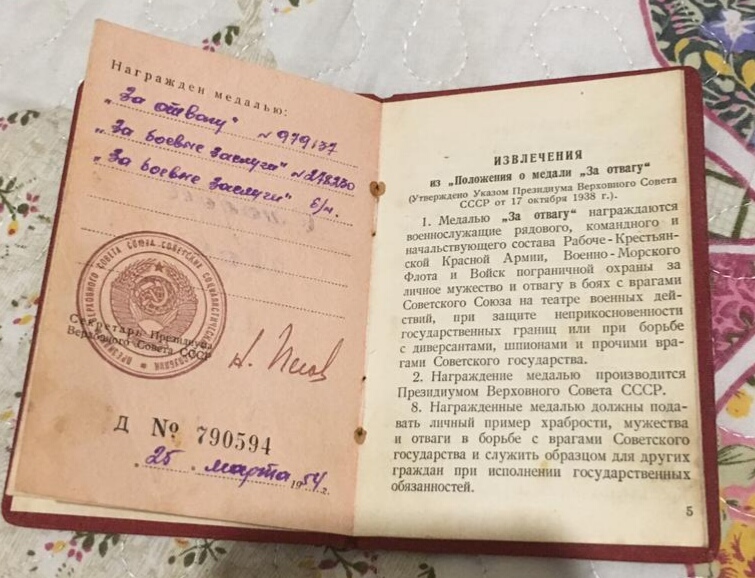 Награжден медалью:
„За отвагу" №979137
„За боевые заслуги" №278230
„За боевые заслуги" б/н.
Секретарь Президиума
Верховного Совета СССР
Д № 790594
„25" марта 1954 г.
ИЗВЛЕЧЕНИЯ
из „Положения о медали „За отвагу"
(Утверждено Указом Президиума Верховного Совета
СССР от 17 октября 1938 г.).
1. Медалью „За отвагу" награждаются
военнослужащие рядового, командного и
начальствующего состава Рабоче-Крестьян-
ской Красной Армии, Военно-Морского
Флота и Войск пограничной охраны за
личное мужество и отвагу в боях с врагами
Советского Союза на театре военных дей-
ствий, при защите неприкосновенности
государственных границ или при борьбе
с диверсантами, шпионами и прочими вра-
гами Советского государства.
2. Награждение медалью производится
Президиумом Верховного Совета СССР.
8. Награжденные медалью должны пода-
вать личный пример храбрости, мужества
и отваги в борьбе с врагами Советского
государства и служить образцом для других
граждан при исполнении государственных
обязанностей.
5